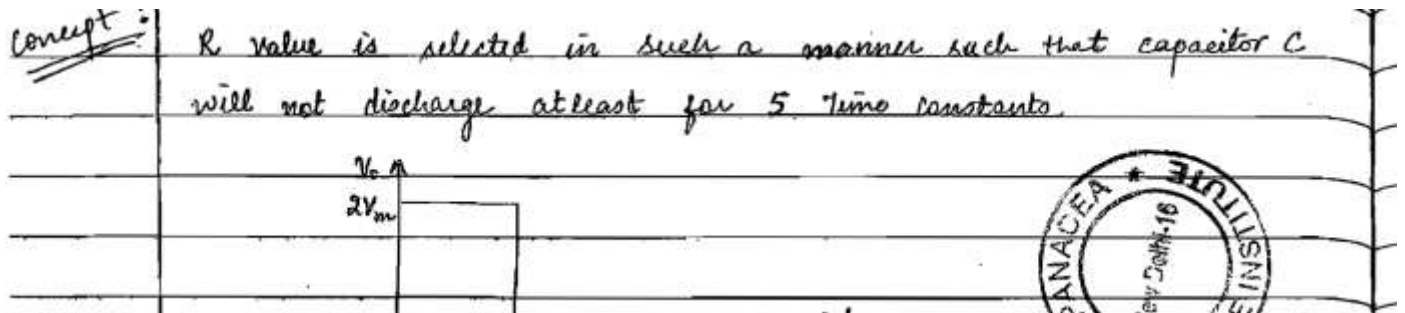 concept :
R value is selected in such a manner such that capacitor C
will not discharge atleast for 5 Time constants.
V₀
2Vm
PANACEA * INSTITUTE
New Delhi-16